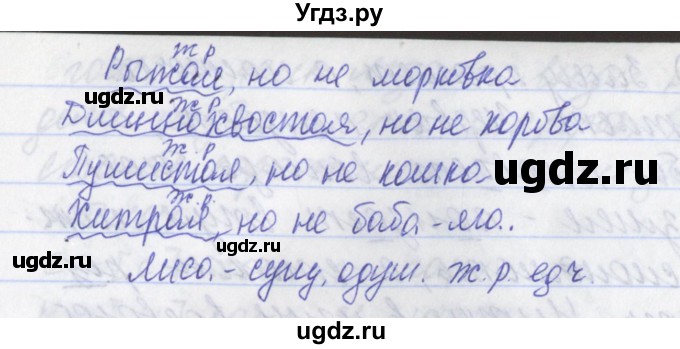 Угдз.ру
ж.р
Рыжая, но не морковка
ж.р
Длиннохвостая, но не корова
ж.р
Пушистая, но не кошка
ж.р
Хитрая, но не баба-яга..
Лиса - сущ, одуш. ж.р. ед ч.
ugdz.ru
ugdz.ru
ugdz.ru
ugdz.ru
ugdz.ru
ugdz.ru